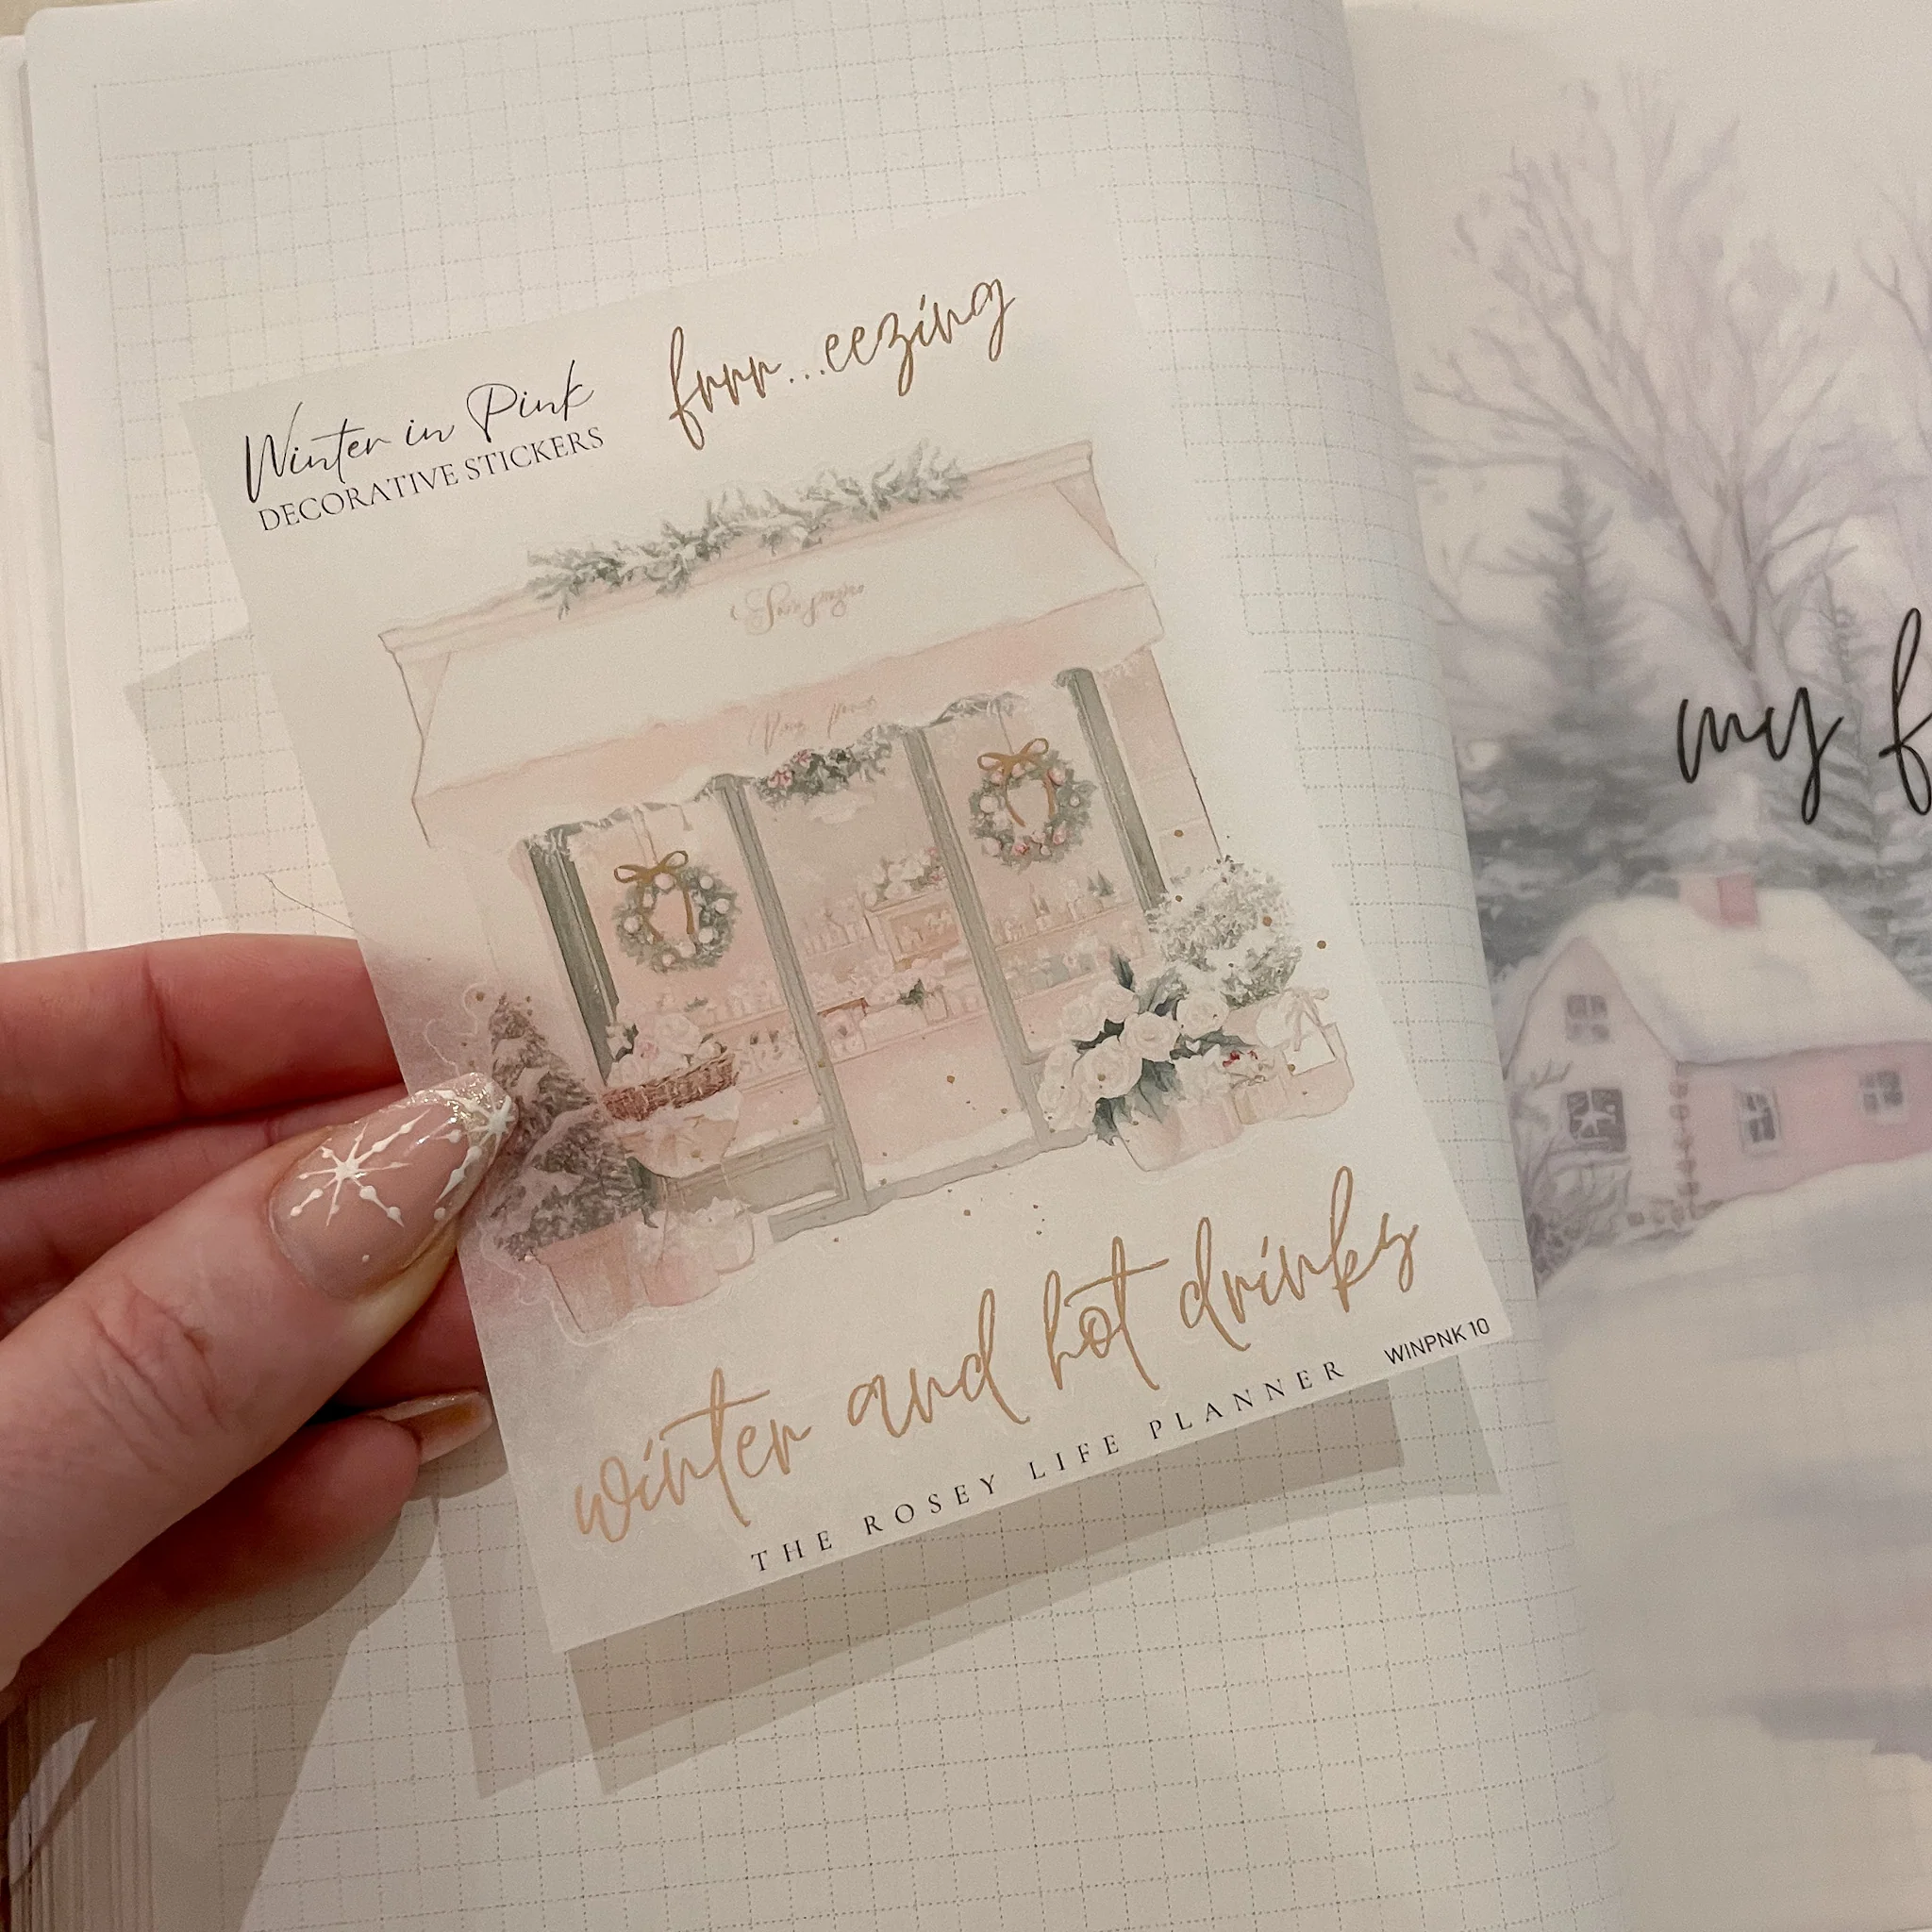 Winter in Pink
DECORATIVE STICKERS
frrr...eezing
winter and hot drinks
THE ROSEY LIFE PLANNER
WINPNK 10
my f